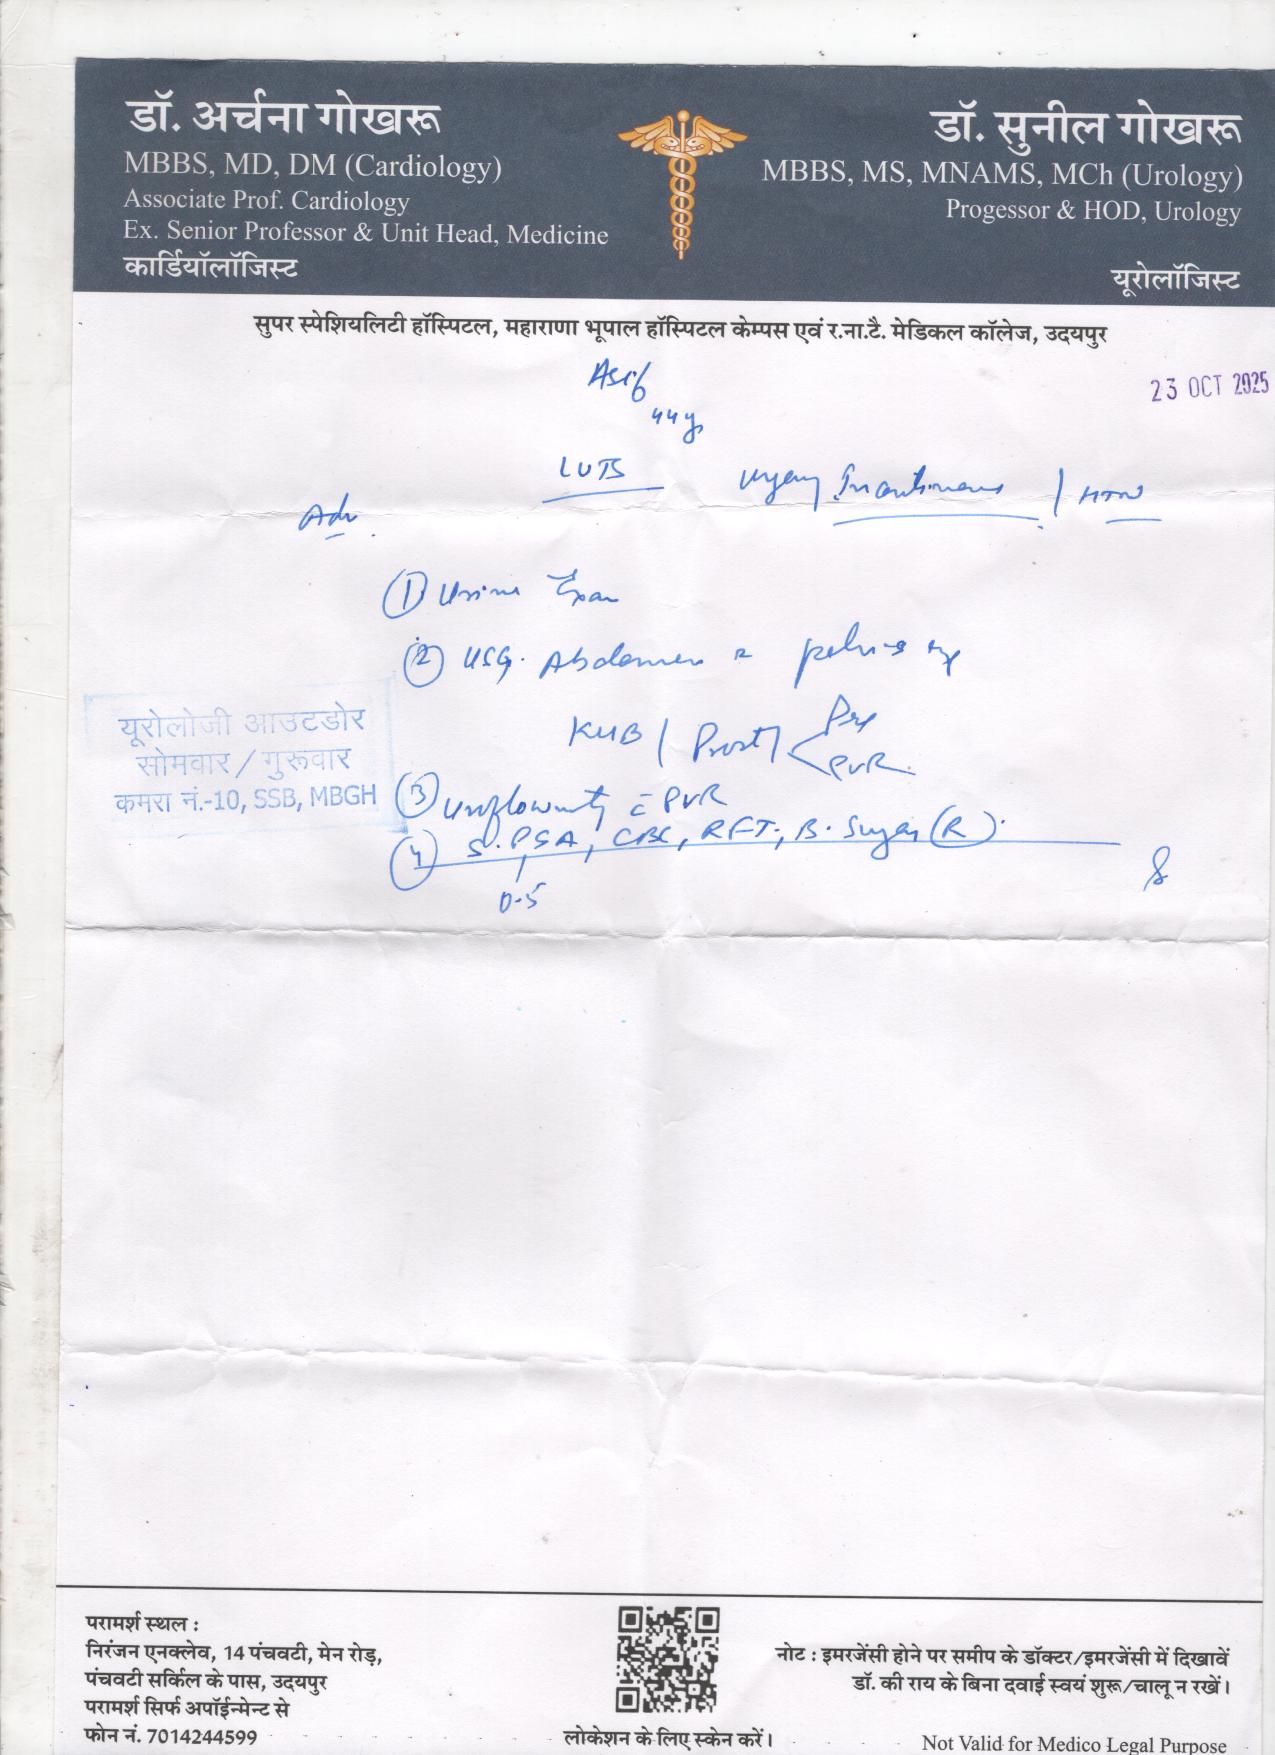 डॉ. अर्चना गोखरू
MBBS, MD, DM (Cardiology)
Associate Prof. Cardiology
Ex. Senior Professor & Unit Head, Medicine
कार्डियॉलॉजिस्ट
डॉ. सुनील गोखरू
MBBS, MS, MNAMS, MCh (Urology)
Progessor & HOD, Urology
यूरोलॉजिस्ट
सुपर स्पेशियलिटी हॉस्पिटल, महाराणा भूपाल हॉस्पिटल केम्पस एवं र.ना.टै. मेडिकल कॉलेज, उदयपुर
23 OCT 2025
Asif
44y
LUTS / HTN
Adv.
① Urine Exam
② USG. Abdomen pelvis
KUB / Prost / Pre
PVR
③ Uroflowmetry c̄ PVR
④ S. PSA, CBC, RFT, B. Sugar (R).
0.5
यूरोलोजी आउटडोर
सोमवार / गुरूवार
कमरा नं.-10, SSB, MBGH
परामर्श स्थल :
निरंजन एनक्लेव, 14 पंचवटी, मेन रोड़,
पंचवटी सर्किल के पास, उदयपुर
परामर्श सिर्फ अपॉईन्मेन्ट से
फोन नं. 7014244599
लोकेशन के लिए स्केन करें।
नोट : इमरजेंसी होने पर समीप के डॉक्टर/इमरजेंसी में दिखावें
डॉ. की राय के बिना दवाई स्वयं शुरू/चालू न रखें।
Not Valid for Medico Legal Purpose